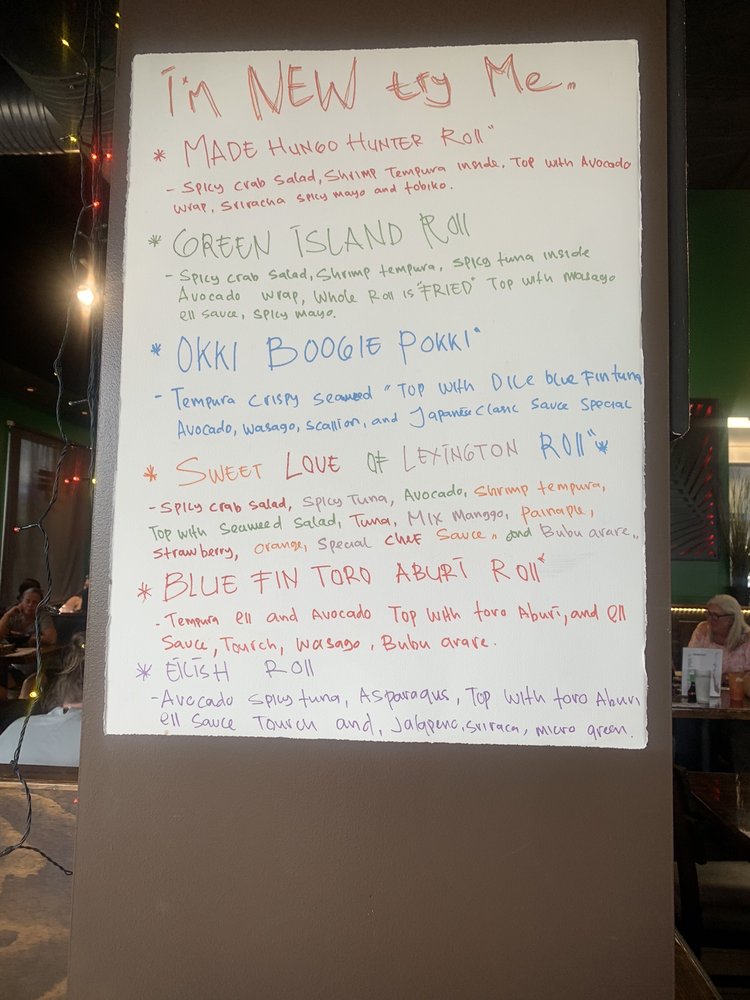 I'm NEW try Me.
* MADE HUNGO HUNTER Roll"
- Spicy crab Salad, Shrimp Tempura inside, Top with Avocado
wrap, Sriracha spicy mayo and tobiko.
* GREEN ISLAND Roll
- Spicy crab Salad, Shrimp tempura, spicy tuna inside
Avocado wrap, Whole Roll is "FRIED" Top with masago
ell sauce, spicy mayo.
* OKKI BOOGIE POKKI"
- Tempura crispy seaweed "Top with Dice blue Fin tuna
Avocado, wasago, scallion, and Japanese clasic Sauce Special
* SWEET LOVE OF LEXINGTON ROll"*
- Spicy crab Salad, Spicy Tuna, Avocado, Shrimp tempura,
Top with Seaweed Salad, Tuna, Mix Manggo, Painaple,
Strawberry, Orange, Special CHEF Sauce " and Bubu arare "
* BLUE FIN TORO ABURI Roll"
- Tempura ell and Avocado Top With toro Aburi, and ell
Sauce, Tourch, Wasago, Bubu arare.
* EILISH Roll
- Avocado Spicy tuna, Asparagus, Top with toro Aburi
ell Sauce Tourch and, Jalapeno, Sriraca, micro green.